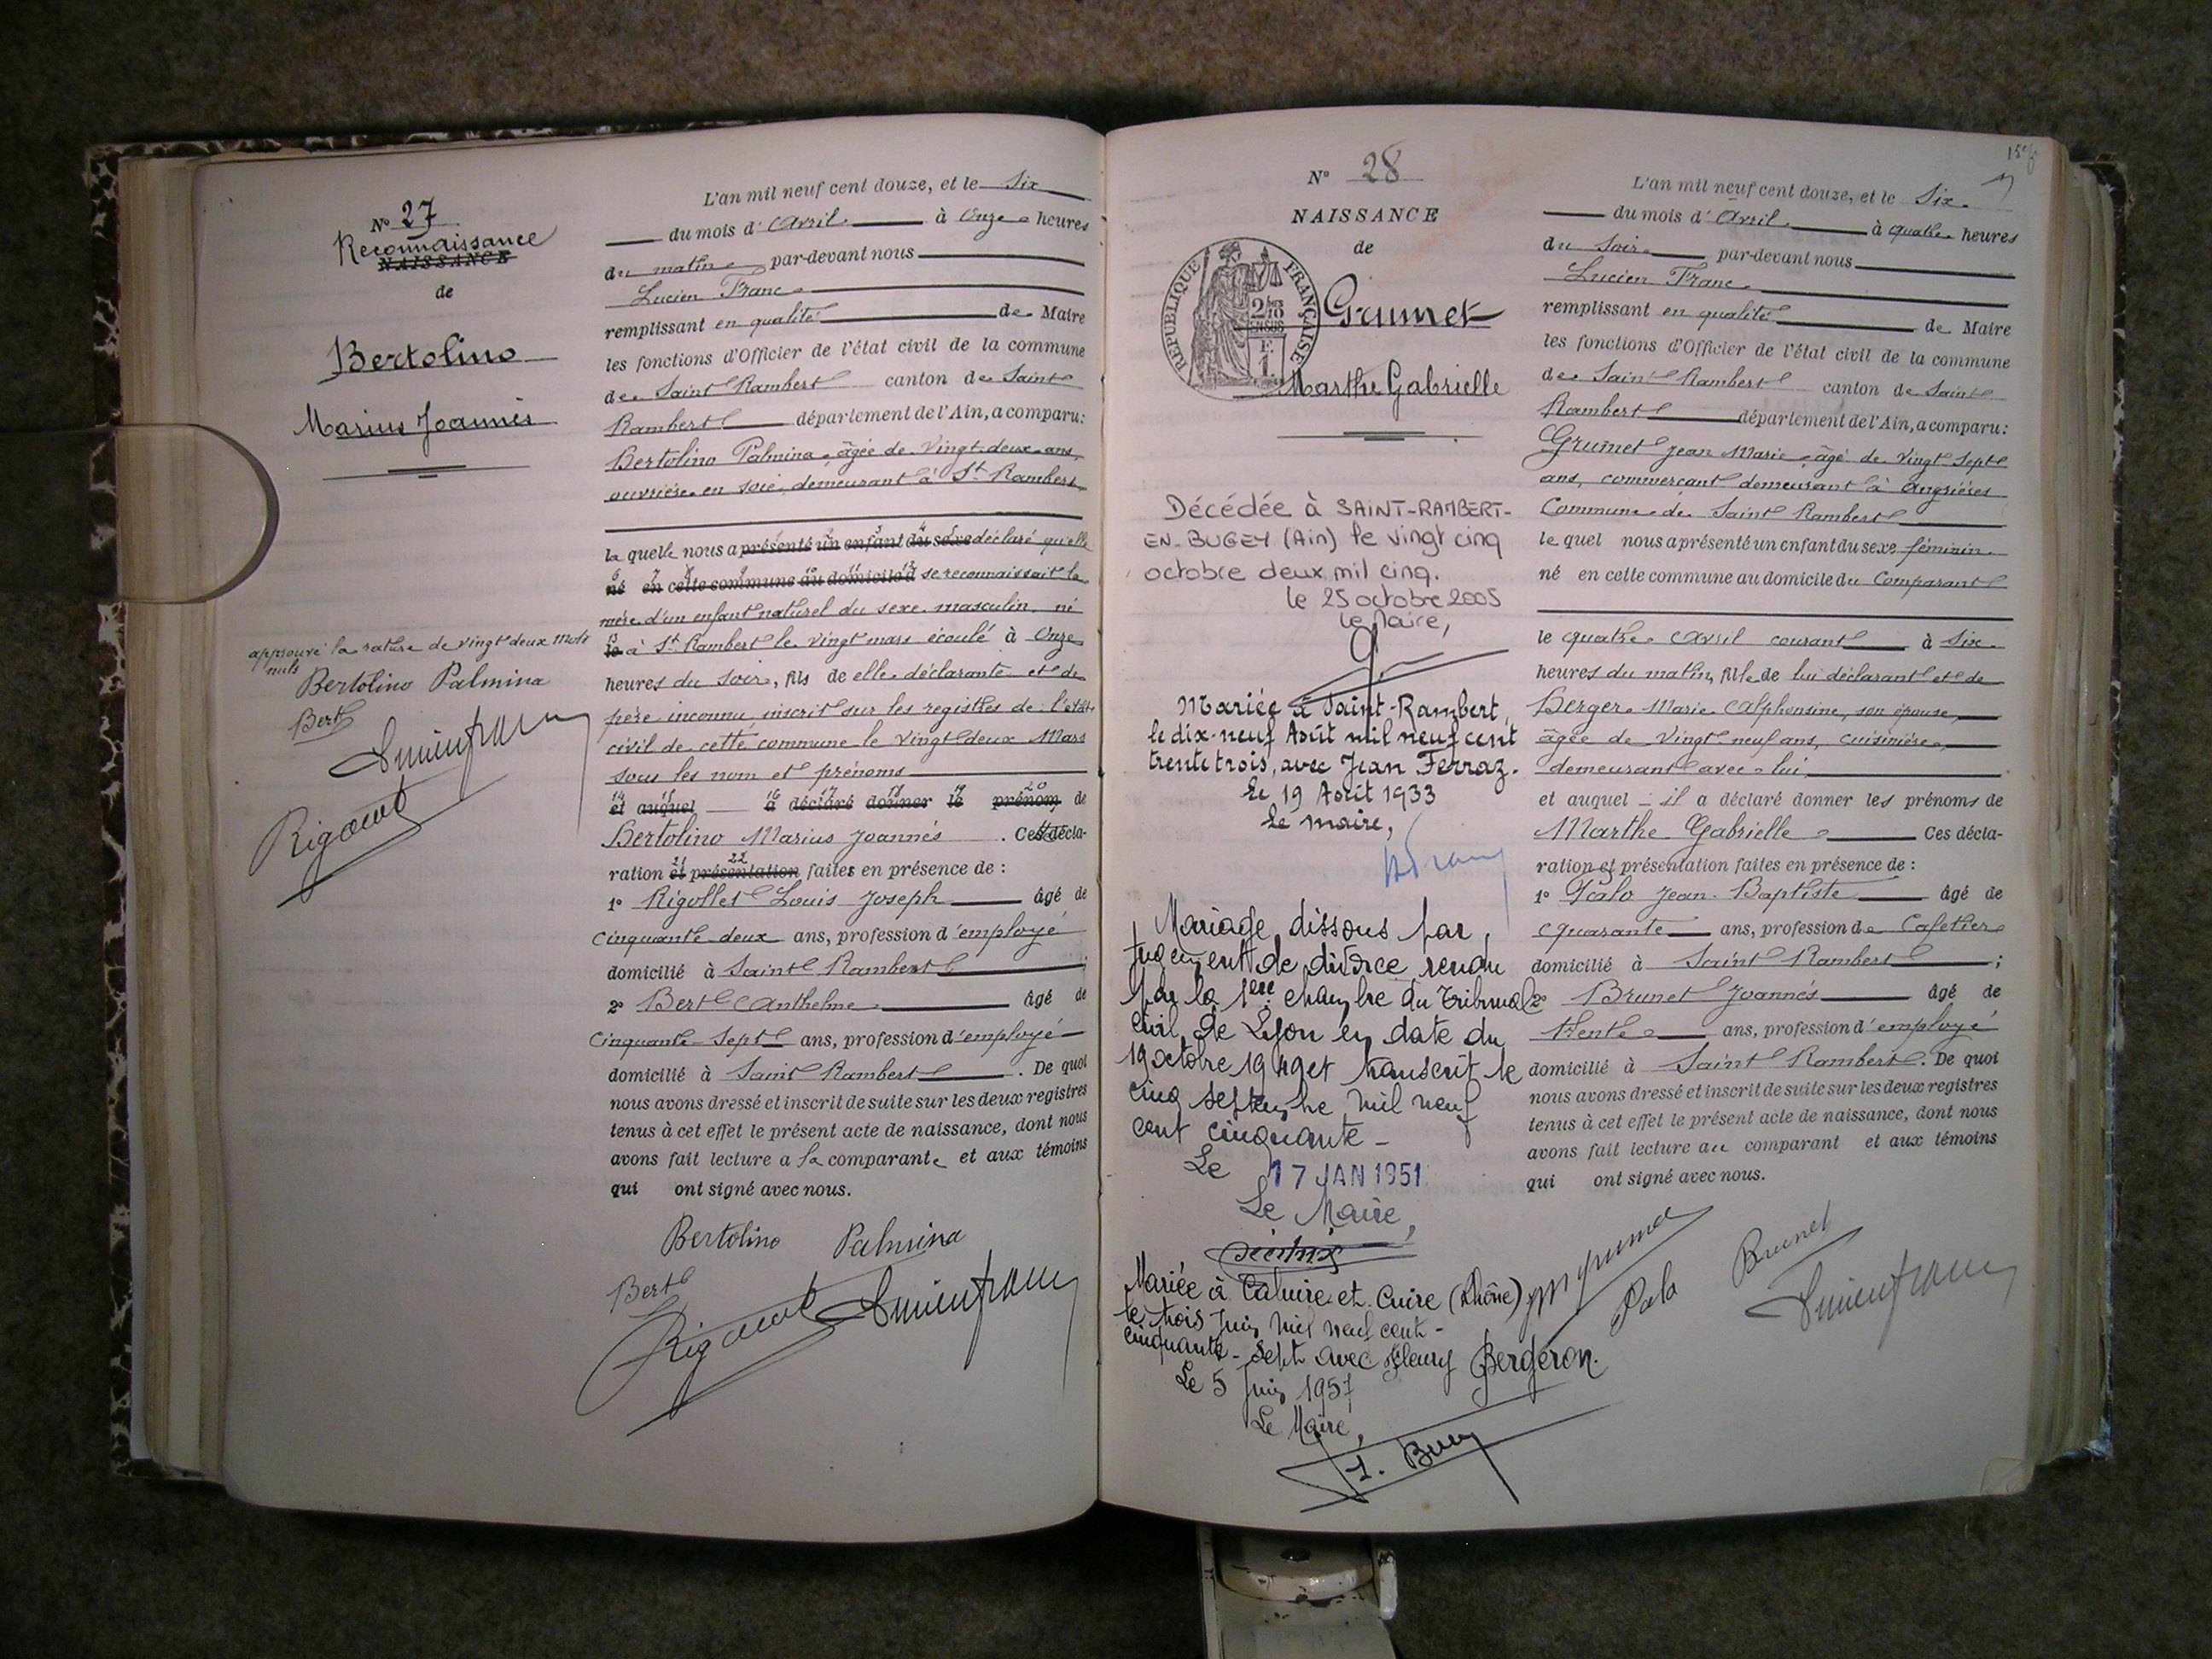 N° 27
Reconnaissance
NAISSANCE
de
Bertolino
Marius Joannès
approuvé la rature de vingt deux mots
nuls
Bertolino Palmina
Bert
Lucien Franc
L'an mil neuf cent douze, et le Six
du mois d'Avril à Onze heures
du matin par-devant nous
Lucien Franc
remplissant en qualité de Maire
les fonctions d'Officier de l'état civil de la commune
de Saint Rambert canton de Saint
Rambert département de l'Ain, a comparu:
Bertolino Palmina, âgée de Vingt-deux ans,
ouvrière en soie, demeurant à St Rambert
la quelle nous a présenté un enfant du sexe déclaré qu'elle
né en cette commune au domicile d se reconnaissait la
mère d'un enfant naturel du sexe masculin, né
le à St Rambert le vingt mars écoulé à Onze
heures du soir, fils de elle déclarante et de
père inconnu, inscrit sur les registres de l'état
civil de cette commune le vingt deux Mars
sous les nom et prénoms
et auquel a déclaré donner le prénom de
Bertolino Marius Joannès. Cette décla-
ration et présentation faites en présence de :
1° Rigollet Louis Joseph âgé de
cinquante deux ans, profession d'employé
domicilié à Saint Rambert ;
2° Bert Anthelme âgé de
cinquante Sept ans, profession d'employé
domicilié à Saint Rambert. De quoi
nous avons dressé et inscrit de suite sur les deux registres
tenus à cet effet le présent acte de naissance, dont nous
avons fait lecture a la comparante et aux témoins
qui ont signé avec nous.
Bertolino Palmina
Bert
Lucien Franc
N° 28
NAISSANCE
de
RÉPUBLIQUE FRANÇAISE
Grumet
Marthe Gabrielle
Décédée à SAINT-RAMBERT-
EN-BUGEY (Ain) le vingt cinq
octobre deux mil cinq.
le 25 octobre 2005
Le Maire,
Mariée à Saint-Rambert,
le dix-neuf Août mil neuf cent
trente trois, avec Jean Ferraz.
Le 19 Août 1933
Le maire,
Mariage dissous par
jugement de divorce rendu
par la 1ère chambre du Tribunal
Civil de Lyon en date du
19 octobre 1949 et transcrit le
cinq septembre mil neuf
cent cinquante -
Le 17 JAN 1951
Le Maire,
Mariée à Caluire et Cuire (Rhône)
le trois Juin mil neuf cent-
cinquante-sept avec Fleury Bergeron.
Le 5 Juin 1957
Le Maire,
L'an mil neuf cent douze, et le Six
du mois d'Avril à quatre heures
du Soir par-devant nous
Lucien Franc
remplissant en qualité de Maire
les fonctions d'Officier de l'état civil de la commune
de Saint Rambert canton de Saint
Rambert département de l'Ain, a comparu:
Grumet Jean Marie, âgé de vingt Sept
ans, commerçant demeurant à Angrières
Commune de Saint Rambert
le quel nous a présenté un enfant du sexe féminin
né en cette commune au domicile du Comparant
le quatre Avril courant à Six
heures du matin, fille de lui déclarant et de
Berger Marie Alphonsine, son épouse,
âgée de Vingt neuf ans, cuisinière,
demeurant avec lui
et auquel il a déclaré donner les prénoms de
Marthe Gabrielle Ces décla-
ration et présentation faites en présence de :
1° Palo Jean-Baptiste âgé de
quarante ans, profession de Cafetier
domicilié à Saint Rambert ;
2° Brunet Joannès âgé de
trente ans, profession d'employé
domicilié à Saint Rambert. De quoi
nous avons dressé et inscrit de suite sur les deux registres
tenus à cet effet le présent acte de naissance, dont nous
avons fait lecture au comparant et aux témoins
qui ont signé avec nous.
Brunet
Palo
Lucien Franc